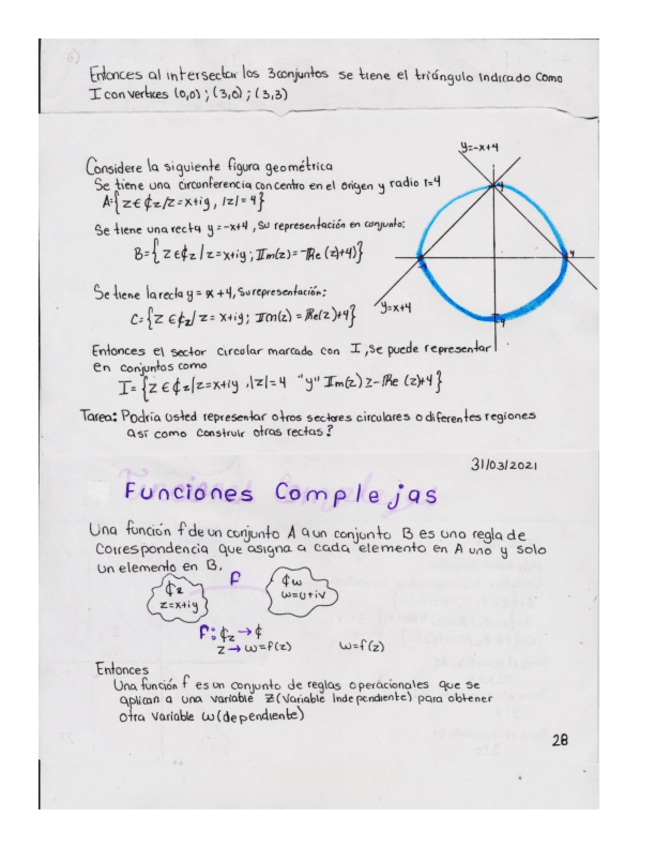 6)
Entonces al intersectar los 3 conjuntos se tiene el triángulo indicado como
I con vertices (0,0) ; (3,0) ; (3,3)
Considere la siguiente figura geométrica
Se tiene una circunferencia con centro en el origen y radio r=4
A={z∈₵z/z=x+iy, |z|=4}
Se tiene una recta y=-x+4, su representación en conjunto:
B={z∈₵z/z=x+iy; Im(z)=-Re(z)+4)}
Se tiene la recta y=x+4, su representación:
C={z∈₵z/z=x+iy; Im(z)=Re(z)+4}
y=-x+4
4
4
y=x+4
I
4
Entonces el sector circular marcado con I, se puede representar
en conjuntos como
I={z∈₵z|z=x+iy, |z|=4 "y" Im(z) z-Re(z)+4}
Tarea: Podría usted representar otros sectores circulares o diferentes regiones
así como construir otras rectas?
31/03/2021
Funciones Complejas
Una función f de un conjunto A a un conjunto B es una regla de
correspondencia que asigna a cada elemento en A uno y solo
un elemento en B.
₵z
z=x+iy
f
₵w
w=u+iv
f: ₵z→₵
z→w=f(z) w=f(z)
Entonces
Una función f es un conjunto de reglas operacionales que se
aplican a una variable z(variable Independiente) para obtener
otra variable w(dependiente)
28